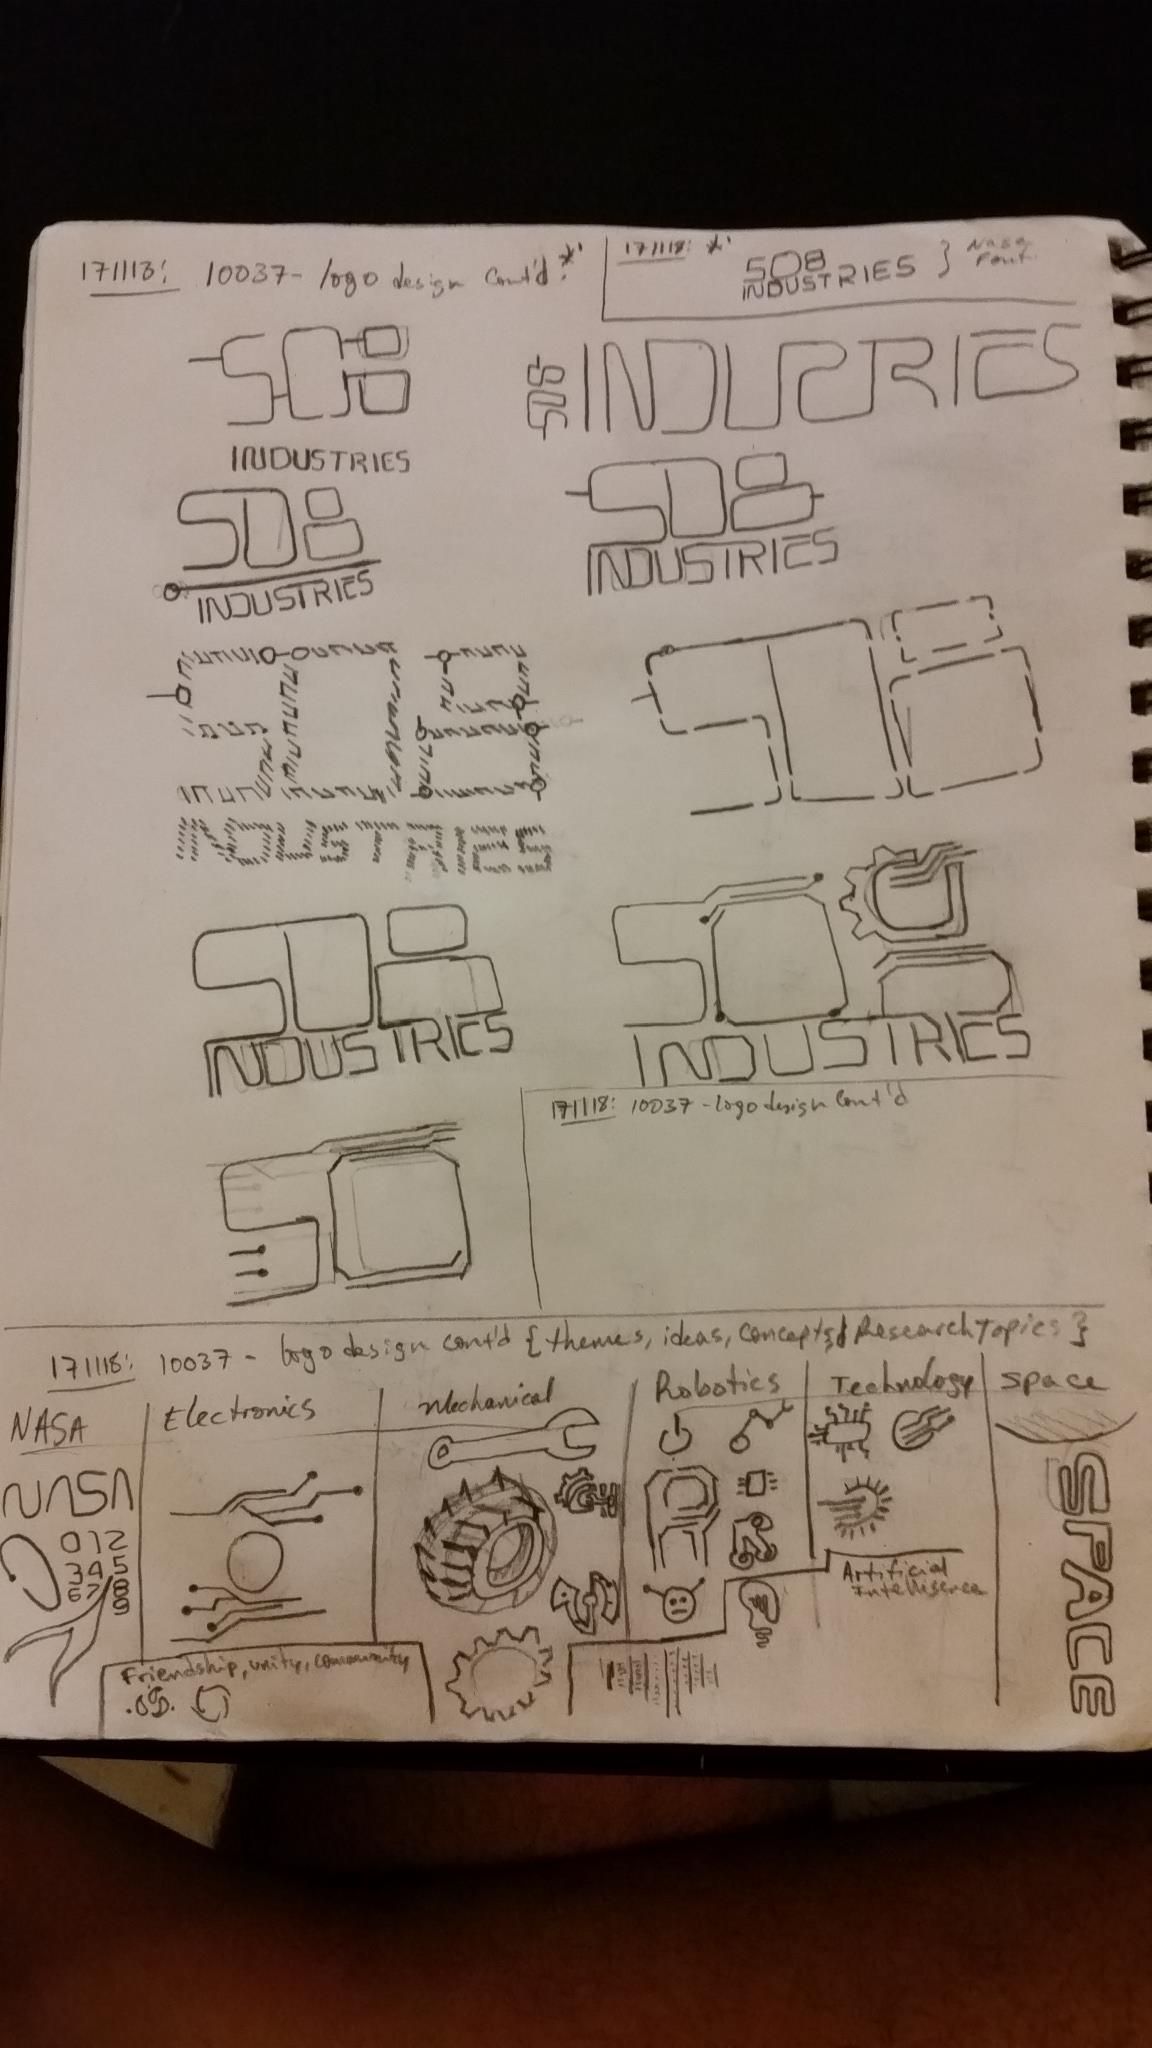 171113: 10037 - logo design Cont'd: *'
171118: *'
508
INDUSTRIES
} Nasa
Font.
508
INDUSTRIES
508 INDUSTRIES
508
INDUSTRIES
508
INDUSTRIES
508
508
INDUSTRIES
508
INDUSTRIES
508
INDUSTRIES
171118: 10037 - logo design Cont'd
50
171118: 10037 - logo design cont'd { themes, ideas, concepts, Research Topics }
NASA
Electronics
Mechanical
Robotics
Technology
Space
NASA
0 1 2
3 4 5
6 7 8
8
9
Artificial
Intelligence
SPACE
Friendship, unity, community